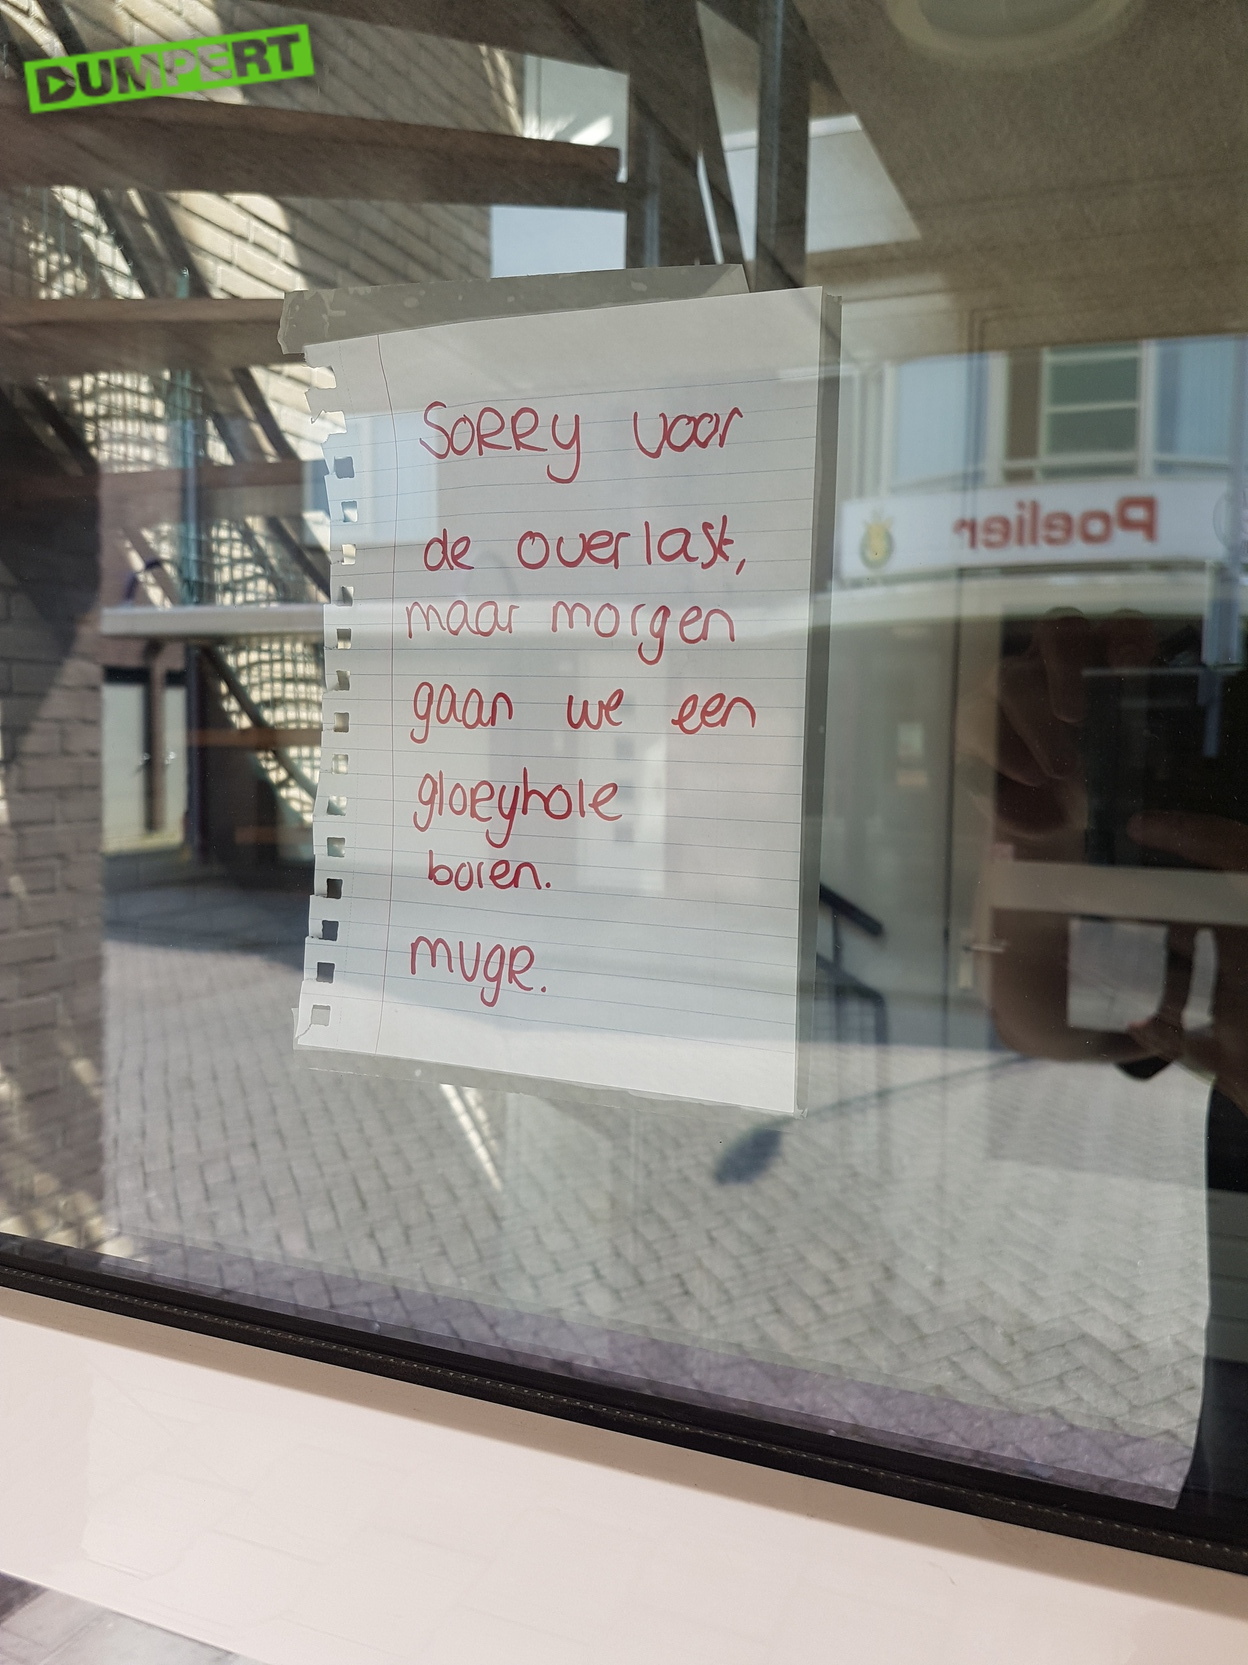 DUMPERT
SORRy voor
de overlast,
maar morgen
gaan we een
gloryhole
boren.
mvgR.
Poelier